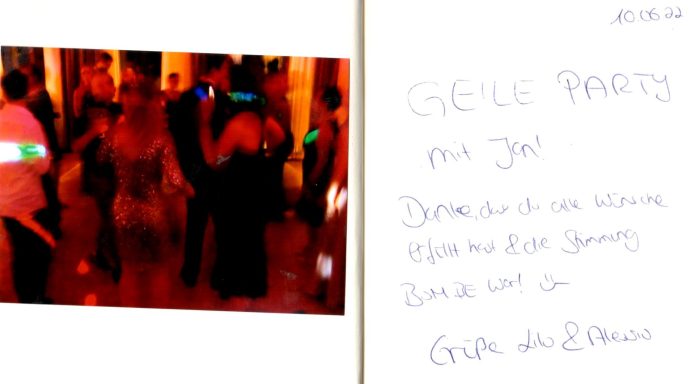 10 06 22
GEILE PARTY
mit Jan!
Danke, das du alle Wünsche
erfüllt hast & die Stimmung
BOMBE war! :)
Grüße Lilo & Alessio